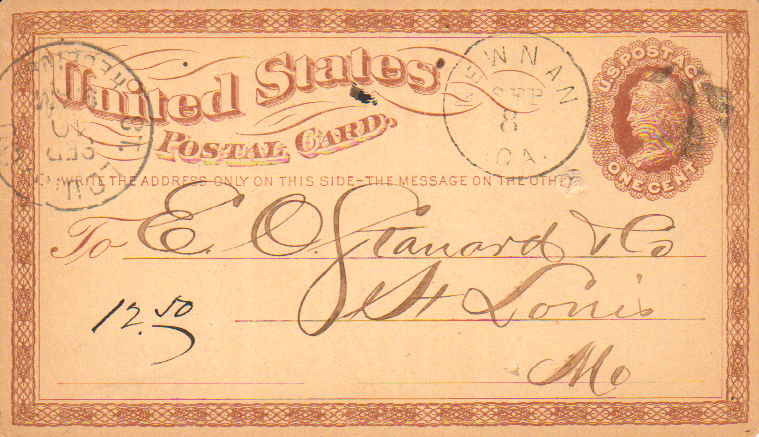 United States
POSTAL CARD.
U.S. POSTAGE
ONE CENT
NEWNAN
SEP
8
GA.
WRITE THE ADDRESS ONLY ON THIS SIDE-THE MESSAGE ON THE OTHER
To E. O. Stanard & Co
St Louis
Mo
12.50